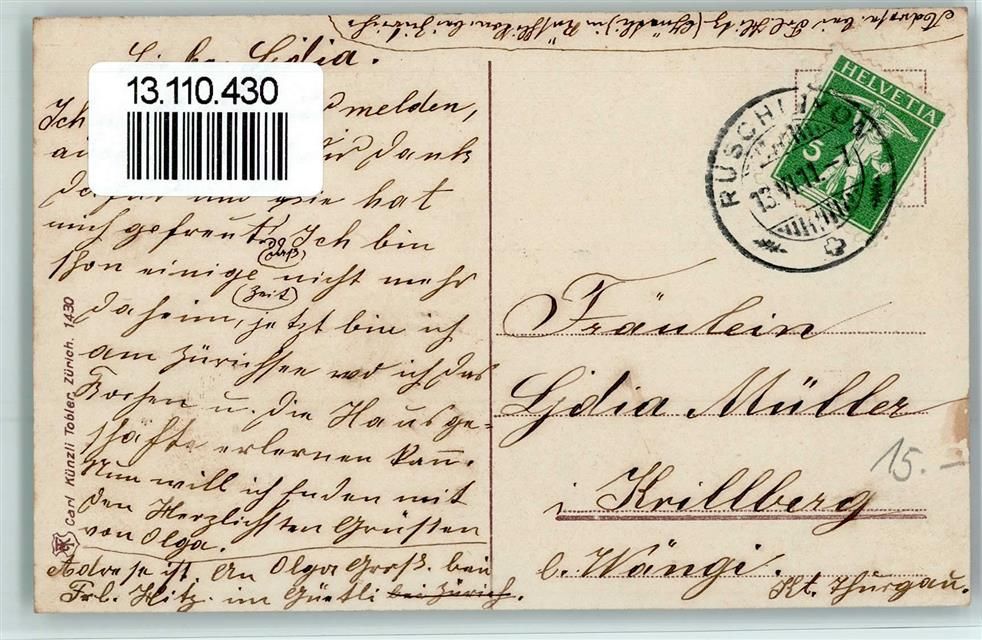 Liebe Lidia.
Ich melden,
dir Dank
dafür und hat
mich gefreut. Ich bin
schon einige nicht mehr
(Zeit)
daheim, jetzt bin ich
am Zürichsee wo ich das
Kochen u. die Hausge-
schäfte erlernen kann.
Nun will ich enden mit
den Herzlichsten Grüssen
von Olga.
Adresse ist. An Olga Groß. bei
Frl. Hitz. im Güetli bei Zürich.
Adresse. bei Frl. Hitz (Güetli) in Rüschlikon bei Zürich
13.110.430
Carl Künzli Tobler, Zürich. 1430
HELVETIA
5
RÜSCHLIKON
13.VI.11.-1
Fräulein
Lydia Müller
i Krillberg
b. Wängi.
Kt. Thurgau.
15.-